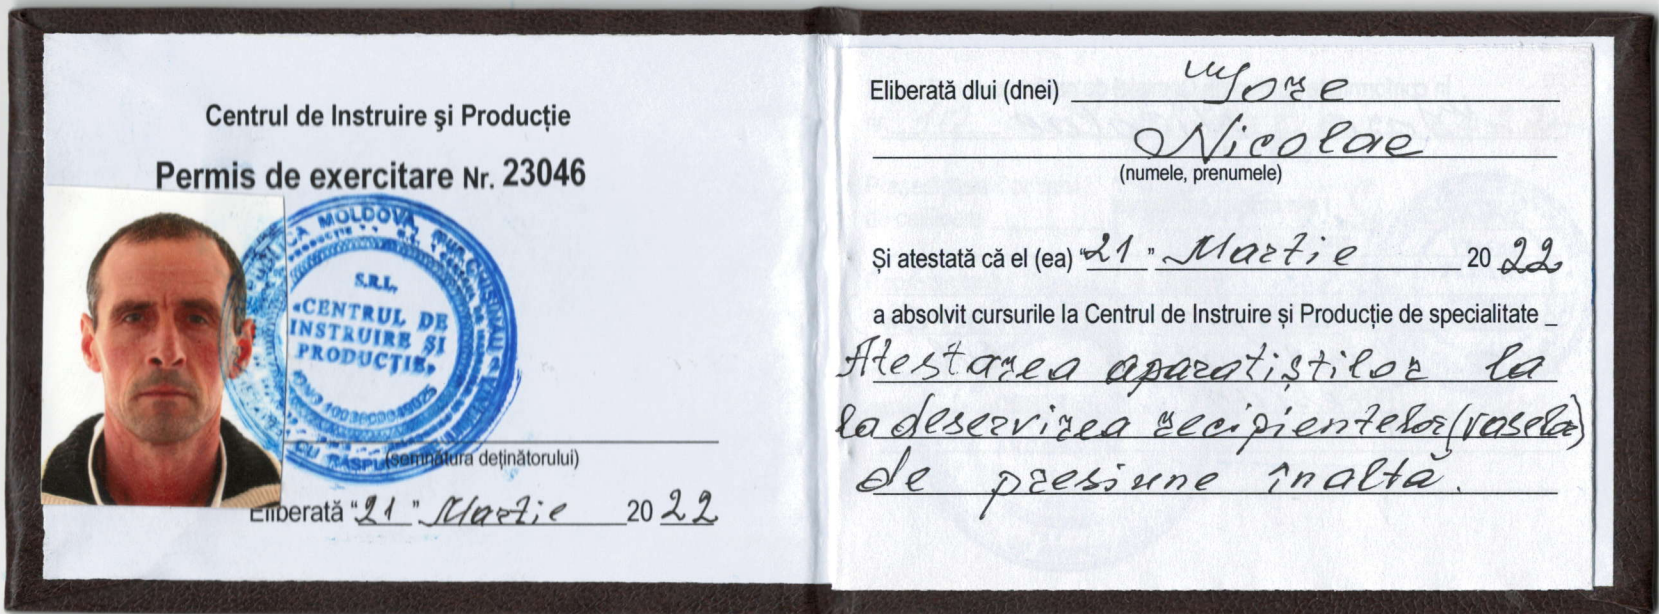 Centrul de Instruire şi Producție
Permis de exercitare Nr. 23046
MOLDOVA
S.R.L.
«CENTRUL DE
INSTRUIRE ȘI
PRODUCȚIE»
(semnătura deținătorului)
Eliberată “21” Martie 2022
Eliberată dlui (dnei)
Nicolae
(numele, prenumele)
Și atestată că el (ea) “21” Martie 2022
a absolvit cursurile la Centrul de Instruire și Producție de specialitate _
Atestarea aparatiștilor la
la deservirea recipientelor (vaselor)
de presiune înaltă.